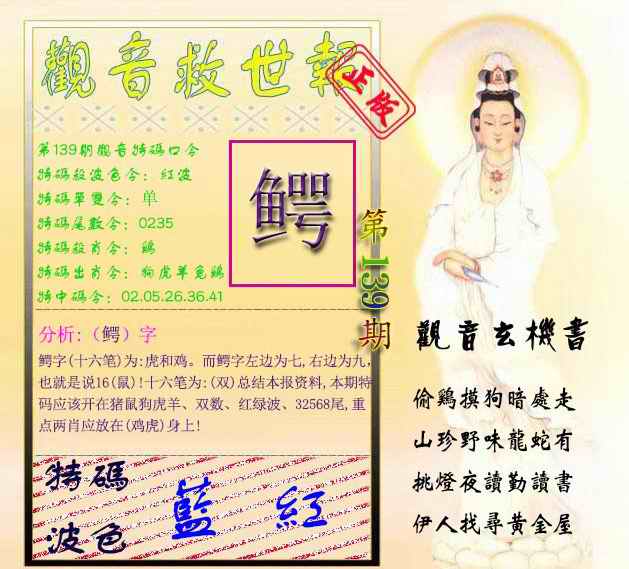 觀音救世報
正版
第139期觀音特碼口令
特碼殺波色令：紅波
特碼單雙令：单
特碼尾數令：0235
特碼殺肖令：鷄
特碼出肖令：狗虎羊兔鷄
特中碼令：02.05.26.36.41
鳄
第139期
分析:（鳄）字
鳄字(十六笔)为:虎和鸡。而鳄字左边为七,右边为九,
也就是说16(鼠)!十六笔为:(双)总结本报资料,本期特
码应该开在猪鼠狗虎羊、双数、红绿波、32568尾,重
点两肖应放在(鸡虎)身上!
特碼
波色
藍 紅
觀音玄機書
偷鷄摸狗暗處走
山珍野味龍蛇有
挑燈夜讀勤讀書
伊人找尋黃金屋